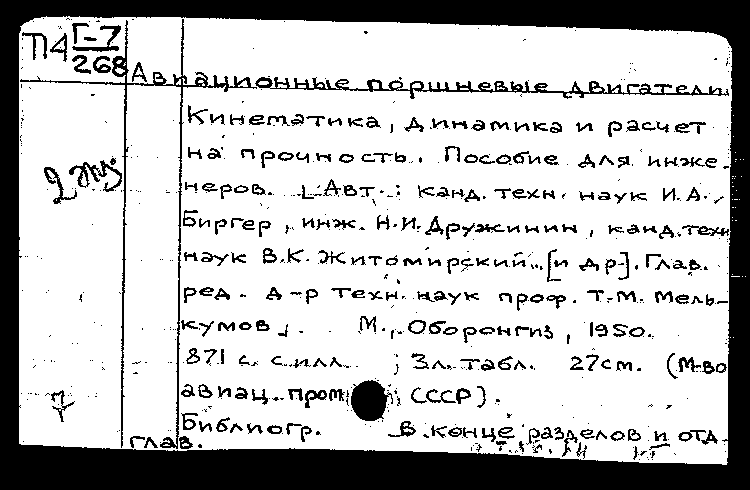 П4 Г-7
268
Авиационные поршневые двигатели.
Кинематика, динамика и расчет
на прочность. Пособие для инже-
неров. [Авт.: канд. техн. наук И.А.
Биргер, инж. Н.И. Дружинин, канд. техн
наук В.К. Житомирский.. [и др]. Глав.
ред. д-р техн. наук проф. Т.М. Мель-
кумов]. М., Оборонгиз, 1950.
871 с. с илл. ; 3 л. табл. 27см. (М-во
авиац. пром СССР).
Библиогр. в конце разделов и отд.
глав.
2 экз